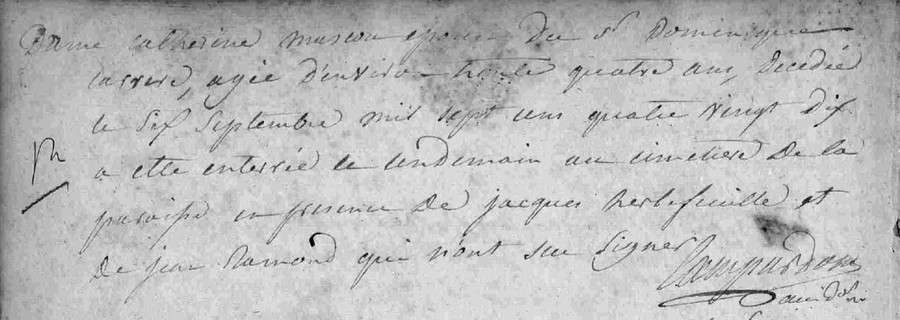 Dame catherine muscou epouse du Sr Dominique
carrere, agée d'environ trente quatre ans, decedée
le six septembre mil sept cens quatre vingt dix
a etté enterrée le lendemain au cimetiere de la
paroisse en presence de jacques herbefeuille et
de jean ramond qui n'ont sçu signer
Campardon